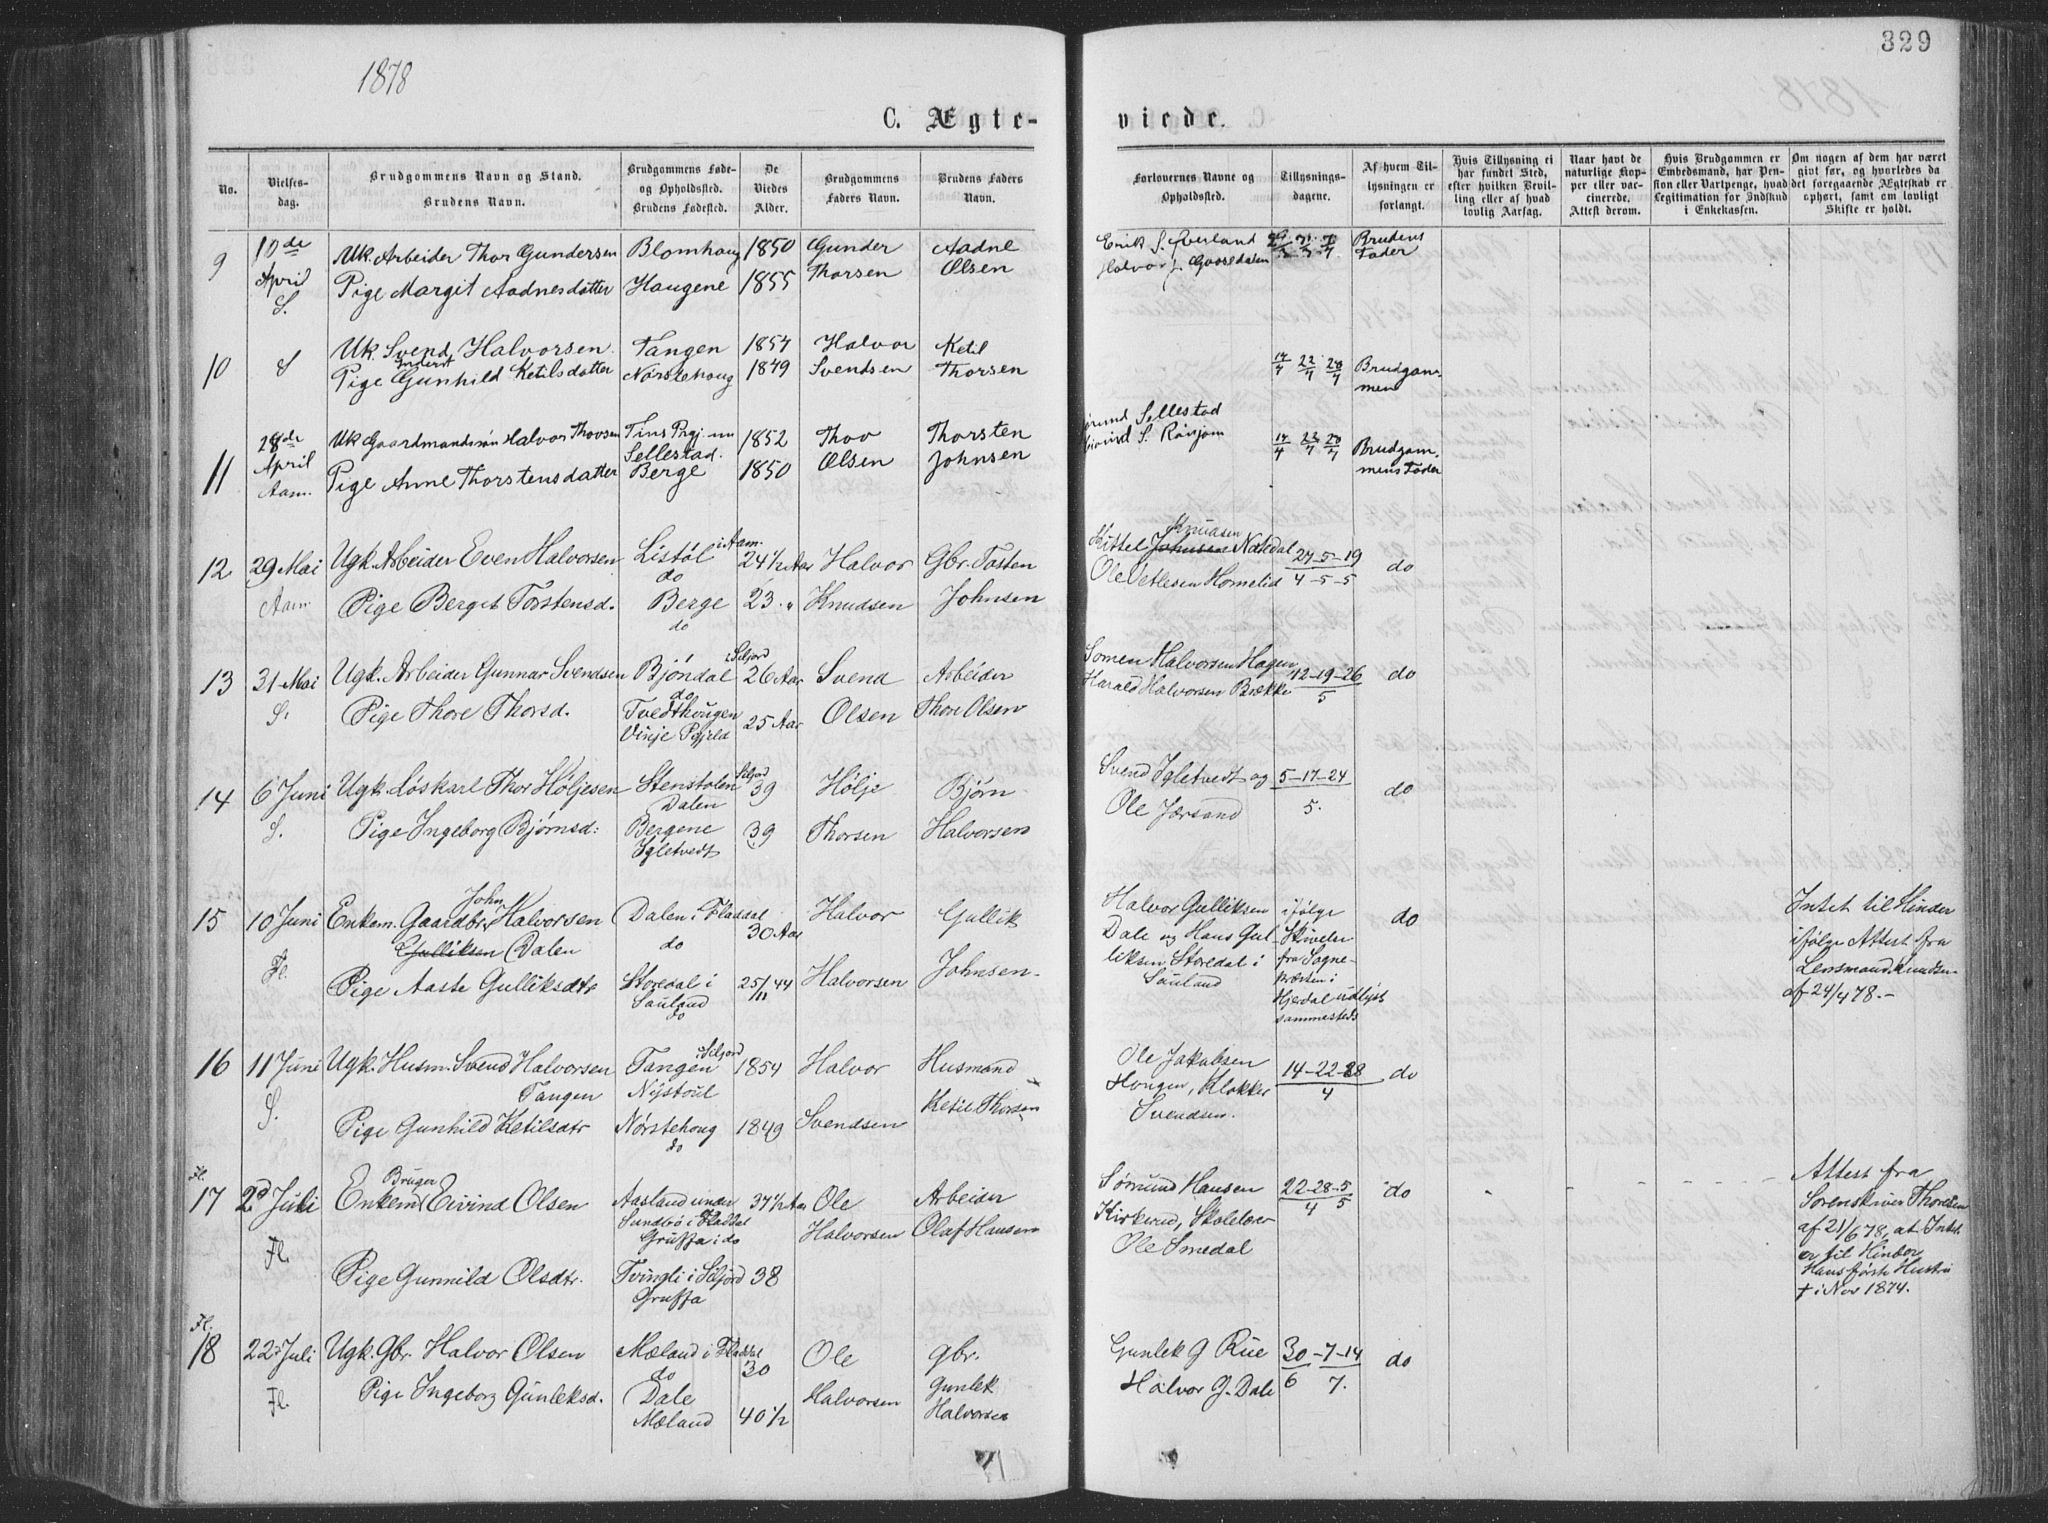 1878
329
C. Ægte-
viede.
No.
Vielses-
dag.
Brudgommens Navn og Stand.
Brudens Navn.
Brudgommens Føde-
og Opholdssted.
Brudens Fødested.
De
Viedes
Alder.
Brudgommens
Faders Navn.
Brudens Faders
Navn.
Forlovernes Navne og
Opholdssted.
Tillysnings-
dagene.
Af hvem Til-
lysningen er
forlangt.
Hvis Tillysning ei
har fundet Sted,
efter hvilken Bevil-
ling eller af hvad
lovlig Aarsag.
Naar havt de
naturlige Kop-
per eller vac-
cinerede.
Attest derom.
Hvis Brudgommen er
Embedsmand, har Pen-
sion eller Vartpenge, hvad
Legitimation for Indskud
i Enkekassen.
Om nogen af dem har været
gift før, og hvorledes da
det foregaaende Ægteskab er
ophørt, samt om lovligt
Skifte er holdt.
9 10de April S.
Uk. Arbeider Thor Gundersen Blomhaug 1850 Gunder Thorsen Aadne Olsen
Pige Margit Aadnesdatter Haugene 1855
Erik S. Øverland
Halvor J. Gaasedalen
Brudens Fader
10 S
Uk. Svend Halvorsen Tangen 1854 Halvor Svendsen Ketil Thorsen
Inderst
Pige Gunhild Ketilsdatter Nørstehoug 1849
14/4 22/4 28/4 Brudgom-
men
11 28de April Aam.
Uk Gaardmandssøn Halvor Thovsen Tins Prgj. 1852 Thov Olsen Thorsten Johnsen
Sellestad.
Pige Anne Thorstensdatter Berge 1850
Sellestad
S. Rönjom
14/4 22/4 28/4 Brudgom-
mens Fader
12 29 Mai Aam.
Ugk. Arbeider Even Halvorsen Listöl i Aam. 24½ Aar Halvor Knudsen Gbr. Tosten Johnsen
do
Pige Berget Torstensd. Berge 23 "
do
Kittel Knudsen Natedal
Ole Vetlesen Homelid
do
13 31 Mai S.
Ugk. Arbeider Gunnar Svendsen Bjöndal i Siljord 26 Aar Svend Olsen Arbeider Thore Olsen
do
Pige Thore Thorsd. Tvedthougen 25 Aar
Vinje Pgjeld
Somen Halvorsen Hagen
Harald Halvorsen Brække
12-19-26
5
do
14 6 Juni S.
Ugk. Løskarl Thor Höljesen Stenstolen Siljord 39 Hölje Thorsen Bjørn Halvorsen
Dalen
Pige Ingeborg Bjørnsd: Bergene 39
Igletvedt
Svend Igletvedt og
Ole Jørsand
5-17-24
5.
do
15 10 Juni Fl.
Enkem. Gaardbr. John Halvorsen Dalen i Fladdal 30 Aar Halvor Halvorsen Gullik Johnsen
Gulliksen Dalen
do
Pige Aaste Gulliksdtr Storedal i 25/11 44
Sauland
do
Halvor Gulliksen
Dale og Hans Gul-
liksen Storedal i
Sauland
ifølge
Skivelse
fra Sogne-
præsten i
Hjerdal udlyst
sammesteds
do
Intet til Hinder
ifølge Attest fra
Lensmand Knudsen
af 24/4 78.-
16 11 Juni S.
Ugk. Husm. Svend Halvorsen Tangen i Siljord 1854 Halvor Svendsen Husmand Ketil Thorsen
Tangen Nystöul
Pige Gunhild Ketilsdtr Nørstehoug 1849
do
Ole Jakobsen
Hougen, Klokker
Svendsen.
14-22-28
4
do
Fl.
17 2d Juli Fl.
Enkem. Bruger Eivind Olsen Aasland under 37½ Aar Ole Halvorsen Arbeider Olaf Hansen
Sundbö i Fladdal
Gruffa i do
Pige Gunnild Olsdtr. Tvingli i Siljord 38
Gruffa
Sømund Hansen
Kirkerud, Skolelærer
Ole Smedal
22-28-5
4 5
do
Attest fra
Sorenskriver Thoresen
af 21/6 78, at Intet
er til Hinder
Hans første Hustru
† i Nov 1874.
Fl.
18 22 Juli Fl.
Ugk. Gbr. Halvor Olsen Mæland i Fladdal 30 Ole Halvorsen Gbr. Gunlek Halvorsen
do
Pige Ingeborg Gunleksd. Dale 40½
Mæland
Gunlek G Rue
Halvor G. Dale
30-7-14
6 7.
do